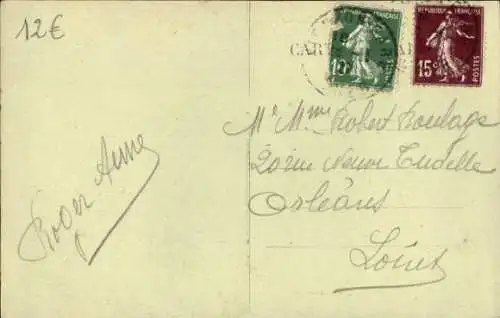 12€
REPUBLIQUE FRANÇAISE
10c
POSTES
REPUBLIQUE FRANÇAISE
15c
POSTES
Mr Mme Robert Boulage
20 rue Neuve Tudelle
Orléans
Loiret
Roger Anne